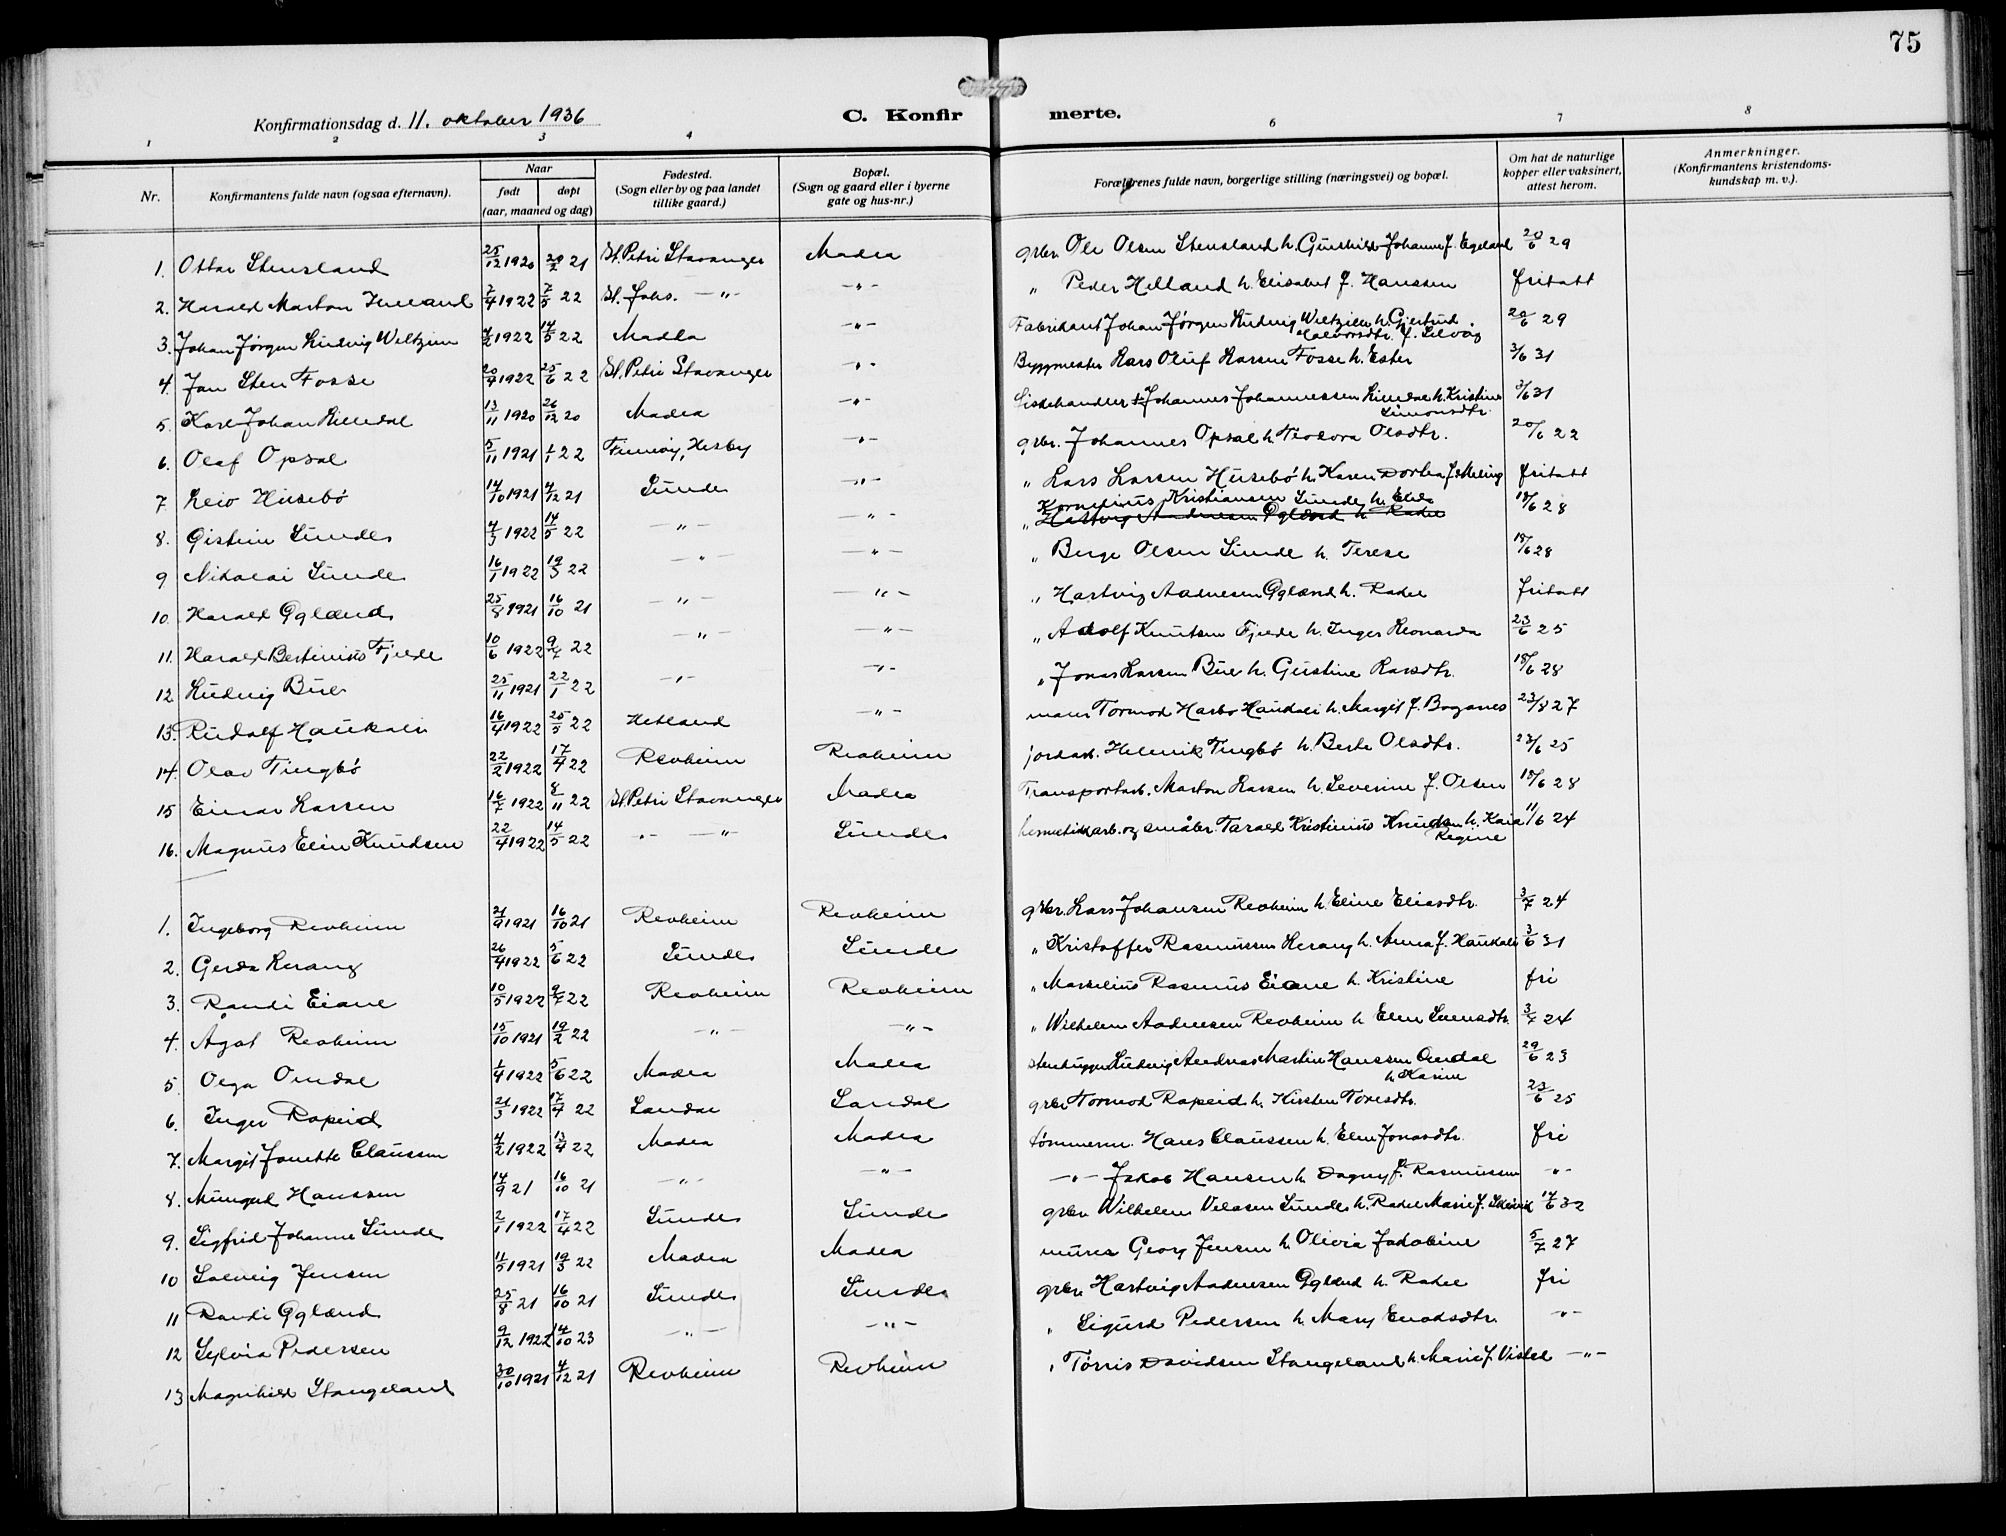 75
Konfirmationsdag d. 11. oktober 1936
C. Konfirmerte.
1 2 3 4 6 7 8
Nr. Konfirmantens fulde navn (ogsaa efternavn). Naar født døpt (aar, maaned og dag) Fødested. (Sogn eller by og paa landet tillike gaard.) Bopæl. (Sogn og gaard eller i byerne gate og hus-nr.) Forældrenes fulde navn, borgerlige stilling (næringsvei) og bopæl. Om hat de naturlige kopper eller vaksinert, attest herom. Anmerkninger. (Konfirmantens kristendomskundskap m. v.).
1. Ottar Stensland 25/12 1920 20/2 21 St. Petri Stavanger Madla grbr. Ole Olsen Stensland h. Gunhild Johanne f. Egeland 20/6 29
2. Harald Marton Helland 7/4 1922 7/5 22 St. Johs. -"- -"- " Peder Helland h. Elisabet f. Hanssen fritatt
3. Johan Jørgen Ludvig Weltzien 4/2 1922 14/5 22 Madla -"- Fabrikant Johan Jørgen Ludvig Weltzien h. Gjertrud Halvorsdtr. f. Lilvåg 20/6 29
4. Jan Sten Fosse 20/4 1922 25/6 22 St. Petri Stavanger -"- Byggmester Lars Oluf Larsen Fosse h. Ester 3/6 31
5. Karl Johan Liendal 13/11 1920 26/12 20 Madla -"- Fiskehandler Johannes Johannessen Liendal h. Kristine Simonsdtr. 3/6 31
6. Olaf Opsal 5/11 1921 1/1 22 Finnøy, Hesby -"- grbr. Johannes Opsal h. Teodora Olsdtr. 20/6 22
7. Leiv Husebø 14/10 1921 4/12 21 Sunde -"- " Lars Larsen Husebø h. Karen Dortea f. Meling fritatt
8. Gistein Sunde 4/3 1922 14/5 22 -"- -"- " Kornelius Kristiansen Sunde h. Elle 18/6 28
Hartvig Aadnesen Ggland h. Rakel
9 Nikolai Sunde 16/1 1922 19/3 22 -"- -"- " Berge Olsen Sunde h. Terese 18/6 28
10. Harald Ggland 25/8 1921 16/10 21 -"- -"- " Hartvig Aadnesen Ggland h. Rakel fritatt
11. Harald Bertinius Fjelde 10/6 1922 9/7 22 -"- -"- " Adolf Knutsen Fjelde h. Inger Leonarda 23/6 25
12 Ludvig Bue 25/11 1921 22/1 22 -"- -"- " Jonas Larsen Bue h. Gustine Larsdtr. 18/6 28
13. Rudolf Haukali 16/4 1922 25/5 22 Hetland -"- maler Tormod Harbo Haukali h. Margit f. Boganes 23/8 27
14. Olav Tingbø 22/2 1922 17/4 22 Revheim Revheim jordarb. Helmik Tingbø h. Berte Olsdtr. 23/6 25
15 Einar Larsen 16/7 1922 8/11 22 St. Petri Stavanger Madla Transportarb. Marton Larsen h. Severine f. Olsen 18/6 28
16. Magnus Elin Knudsen 22/4 1922 14/5 22 -"- -"- Sunde hermetikkarb. og småbr. Tarald Kristinius Knudsen h. Kaia Regine 11/6 24
1. Ingeborg Revheim 21/9 1921 16/10 21 Revheim Revheim grbr. Lars Johansen Revheim h. Eline Eliasdtr. 3/7 24
2. Gerda Lerang 26/4 1922 5/6 22 Sunde Sunde " Kristoffer Rasmussen Lerang h. Anna f. Haukali 3/6 31
3. Randi Eiane 10/5 1922 9/7 22 Revheim Revheim " Marselius Rasmus Eiane h. Kristine fri
4. Agot Revheim 15/10 1921 19/2 22 -"- -"- " Wilhelm Aadnesen Revheim h. Elen Svensdtr. 3/7 24
5 Olga Omdal 1/4 1922 5/6 22 Madla Madla stenhugger Ludvig Andreas Martin Hanssen Omdal h. Karine 29/6 23
6. Inger Rapeid 21/3 1922 17/4 22 Sandal Sandal grbr Tormod Rapeid h. Kirsten Toresdtr. 23/6 25
7. Margit Jonette Claussen 4/2 1922 13/4 22 Madla Madla tømmerm. Hans Claussen h. Elen Jonasdtr. fri
8. Hanssen 14/9 21 16/10 21 -"- -"- -"- Jakob Hansen h. Dagny f. Rasmussen -"-
9. Sigfrid Johanne Sunde 2/1 1922 17/4 22 Sunde Sunde grbr. Wilhelm Velasen Sunde h. Rakel Marie f. 17/6 32
10 Solveig Jensen 11/5 1921 19/3 22 Madla Madla murer Georg Jensen h. Olivia Jakobine 5/7 27
11 Randi Ggland 25/8 21 16/10 21 Sunde Sunde grbr. Hartvig Aadnesen Ggland h. Rakel fri
12 Sylvia Pedersen 9/12 1922 14/10 23 -"- -"- " Sigurd Pedersen h. Mary Enoksdtr. -"-
13 Magnhild Stangeland 30/10 1921 4/12 21 Revheim Revheim " Tørris Davidsen Stangeland h. Marie f. Viste -"-